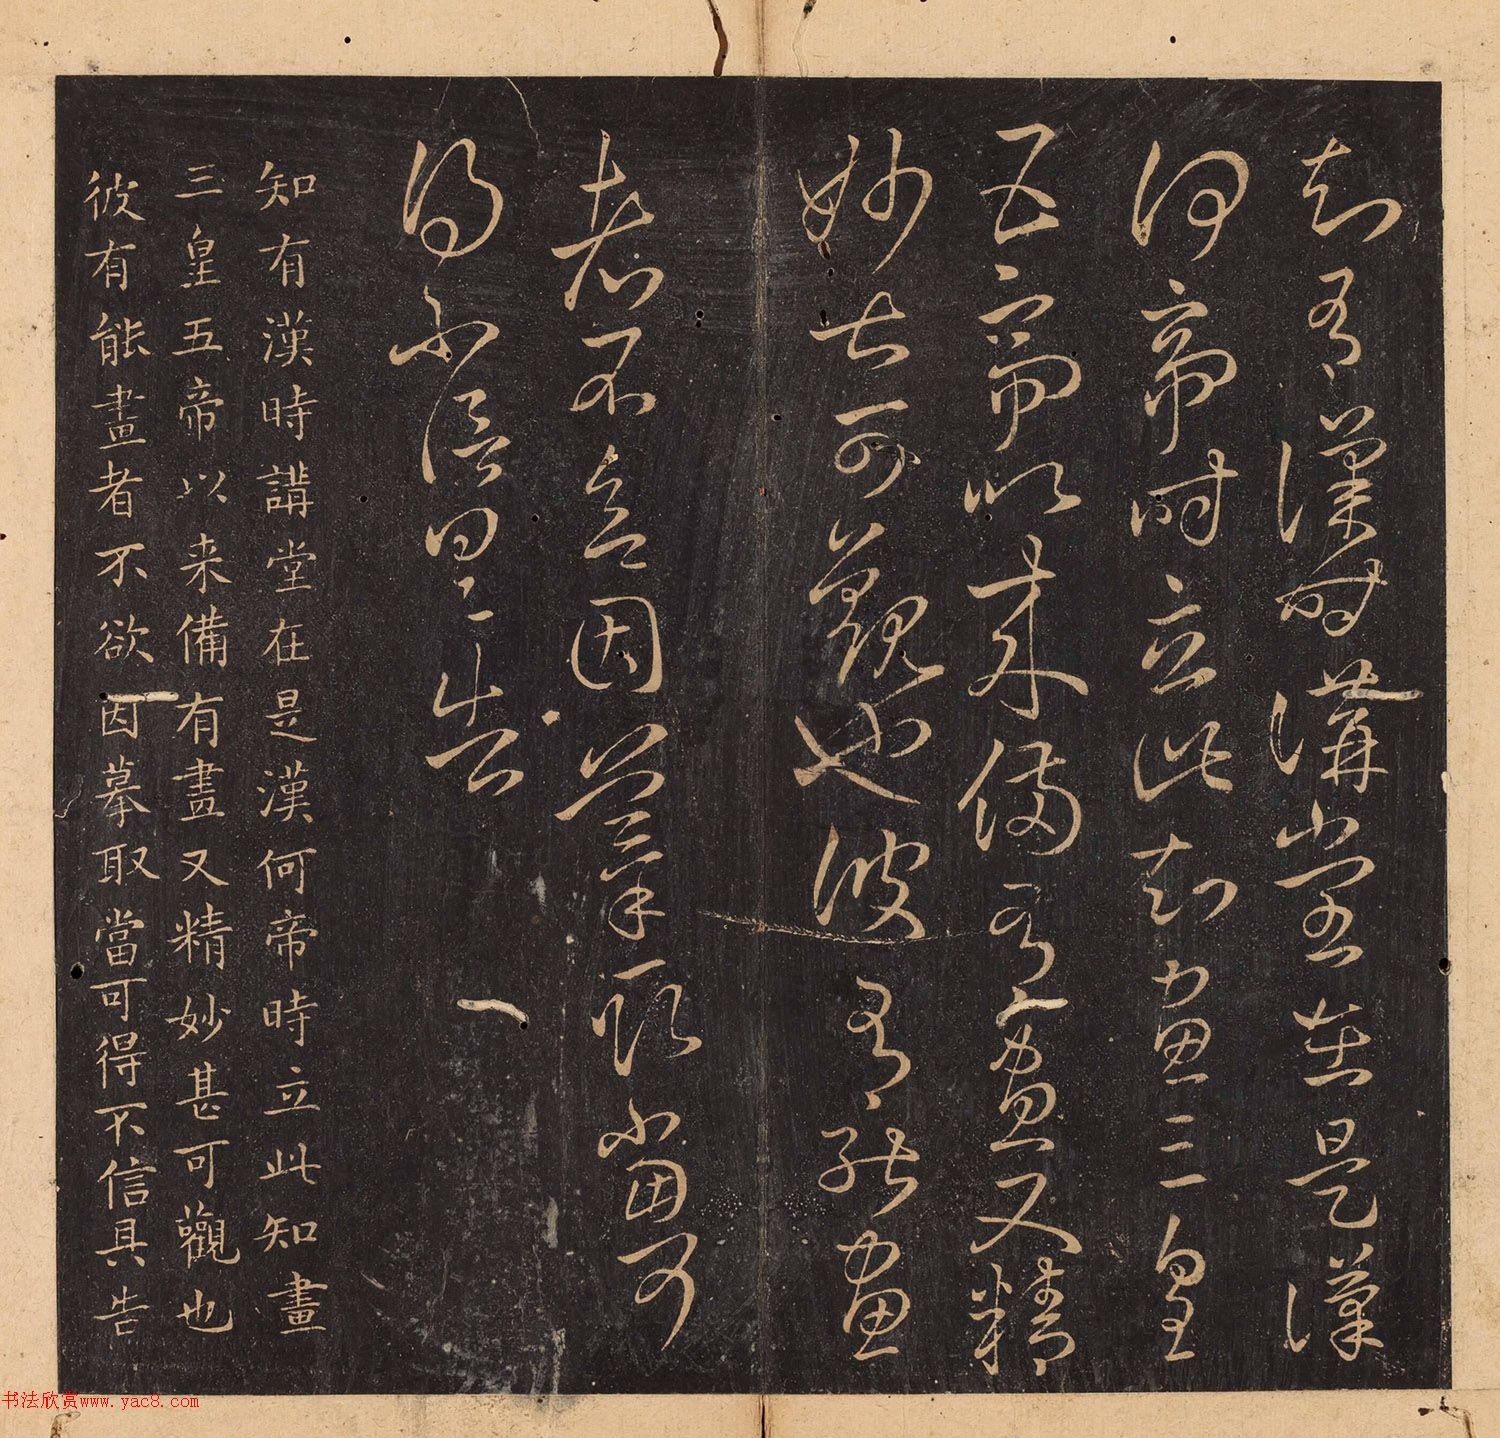 知有漢時講堂在是漢
何帝時立此知畫三皇
五帝以來備有畫又精
妙甚可觀也彼有能畫
者不欲因摹取當可
得不信具告
知有漢時講堂在是漢何帝時立此知畫
三皇五帝以来備有畫又精妙甚可觀也
彼有能畫者不欲因摹取當可得不信具告
书法欣赏www.yac8.com